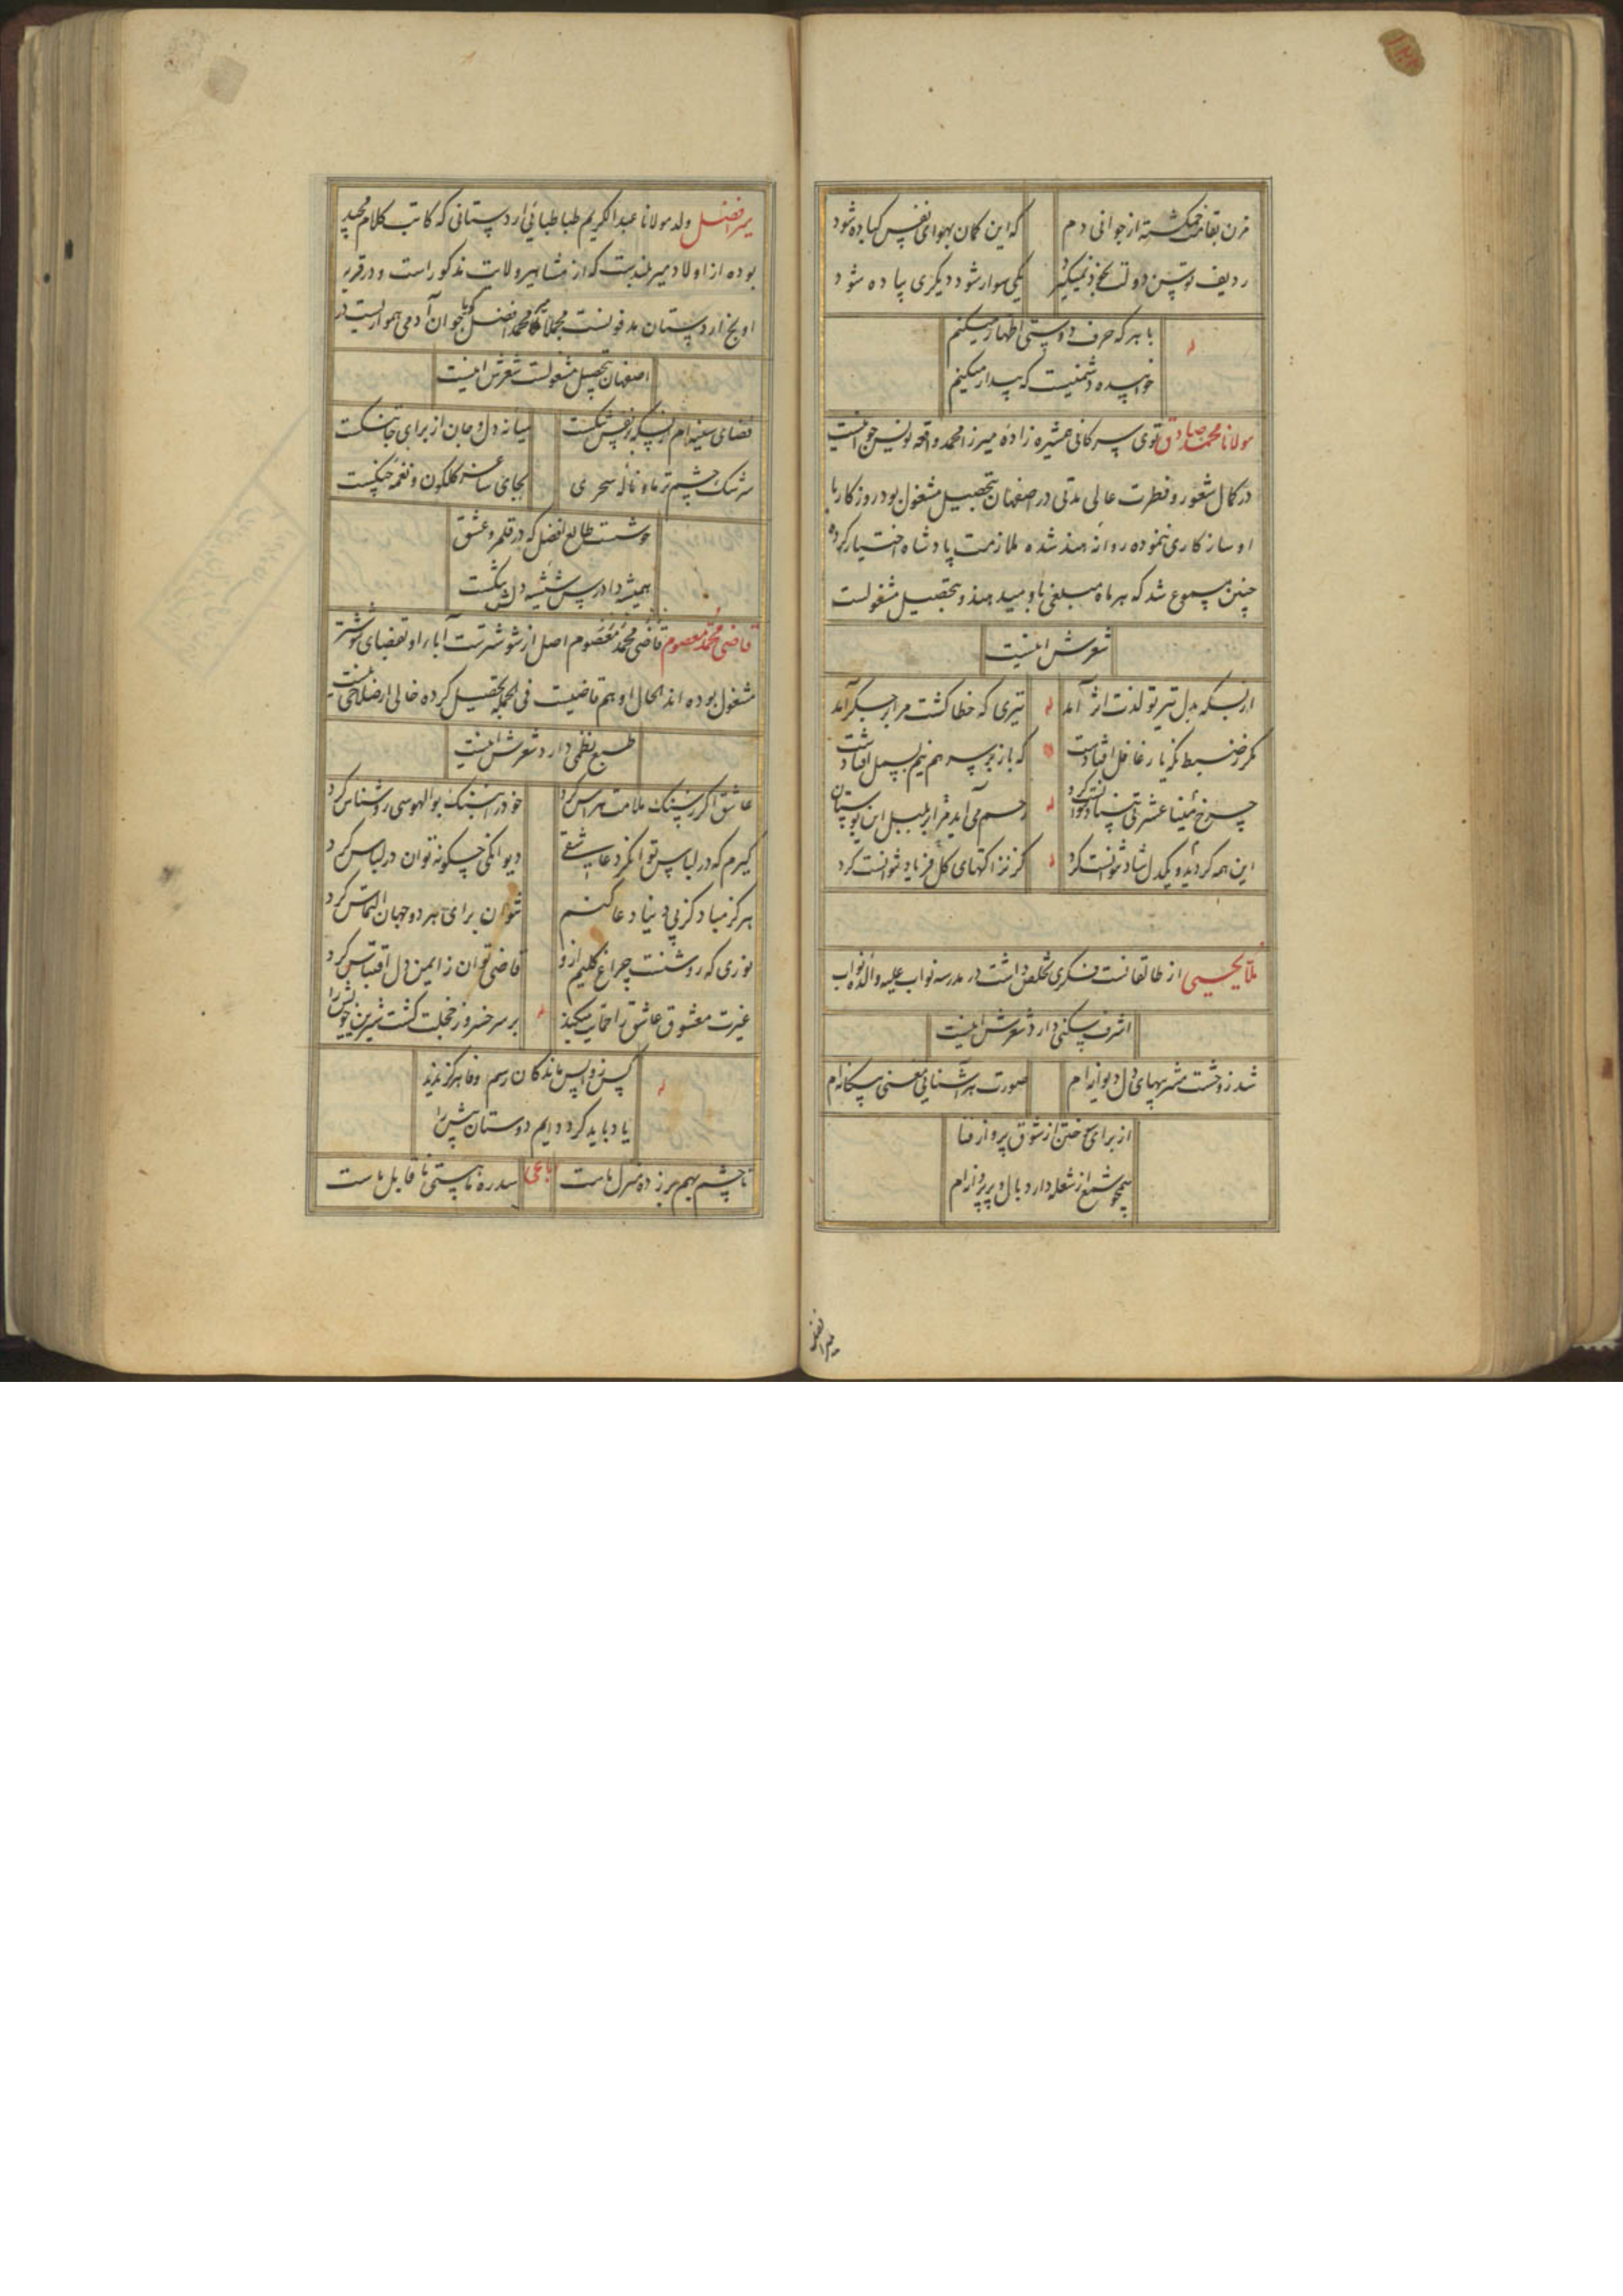 مزن بقامت خمگشته از جوانی دم
که این کمان بهوای نفس کباده شود
ردیف توسن دولت بخود نمیگیرد
یکی سوار شود دیگری پیاده شود
با هر که حرف دوستی اظهار میکنم
خوابیده دشمنیست که بیدار میکنم
مولانا محمد صادق توی سرکانی همشیره زاده میرزا محمد واقعه نویس جوانیست
در کمال شعور و فطرت عالی مدتی در اصفهان بتحصیل مشغول بود روزگار با
او سازکاری ننموده روانه هند شده ملازمت پادشاه اختیار کرده
چنین مسموع شد که هر ماه مبلغی باو میدهند و بتحصیل مشغولست
شعرش اینست
از بسکه بدل تیر تو لذت اثر آمد
تیری که خطا گشت مرا بر جگر آمد
مگر ضبط نگه یار غافل افتادست
که باز بر سر هم نیم بسمل افتادست
چرخ مینا عشرتی بنیاد نتوانست کرد
رحم می آید مرا بر بلبل این بوستان
این همه گردید و یکدل شاد نتوانست کرد
کز نزاکتهای گل فریاد نتوانست کرد
ملا یحیی از طالقانست فکری تخلص داشت در مدرسه نواب علیه والده نواب
اشرف سکنی دارد شعرش اینست
شد ز وحشت مشربیهای دل دیوانه ام
صورت هر آشنایی معنی بیگانه ام
از برای سوختن از شوق پرواز فنا
همچو شمع از شعله دارد بال و پر پروانه ام
میر افضل
میر افضل ولد مولانا عبدالکریم طباطبائی اردستانی که کاتب کلام مجید
بوده از اولاد میر بلندست که از مشاهیر ولایت مذکور است و در قریه
اونج اردستان مدفونست مجملا محمد افضل جوان آدمی همواریست در
اصفهان بتحصیل مشغولست شعرش اینست
فضای سینه ام از بسکه بر نفس تنگست
میانه دل و جان از برای جا جنگست
سرشک چشم تر ما و ناله سحری
بجای ساغر گلگون و نغمه چنگست
خوشست طالع افضل که در قلمرو عشق
همیشه دادرس شیشه دلش سنگست
قاضی محمد معصوم قاضی محمد معصوم اصل از شوشترست آباء او بقضای شوشتر
مشغول بوده اند الحال او هم قاضیست فی الجمله تحصیل کرده خالی از صلاحی نیست
طبع نظمی دارد شعرش اینست
عاشق اگر ز سنگ ملامت هراس کرد
خود را بسنگ بوالهوسی روشناس کرد
گیرم که در لباس توان کرد عاشقی
دیوانگی چگونه توان در لباس کرد
هرگز مباد کز پی دنیا دعا کنم
نتوان برای هر دو جهان التماس کرد
نوری که روشنست چراغ کلیم ازو
قاضی توان ز ایمن دل اقتباس کرد
غیرت معشوق عاشق را حمایت میکند
بر سر خسرو ز خجلت کشت شیرین خویش را
پس زو واپس ماندگان رسم وفا هرگز ندید
یاد باید کرد دایم دوستان پیش را
رباعی
تا چشم بهم بر زده منزل ماست
سد ره ما هستی ناقابل ماست